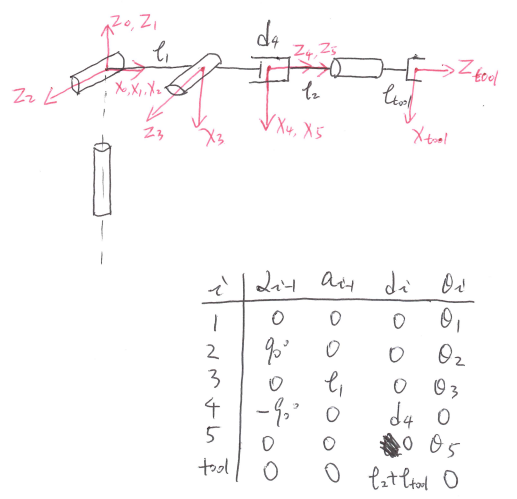 Z₀, Z₁
d₄
l₁
Z₄, Z₅
Z₂
X₀, X₁, X₂
Z₃
X₃
l₂
l_tool
Z_tool
X₄, X₅
X_tool
i α_{i-1} a_{i-1} d_i θ_i
1 0 0 0 θ₁
2 90° 0 0 θ₂
3 0 l₁ 0 θ₃
4 -90° 0 d₄ 0
5 0 0 0 θ₅
tool 0 0 l₂+l_tool 0